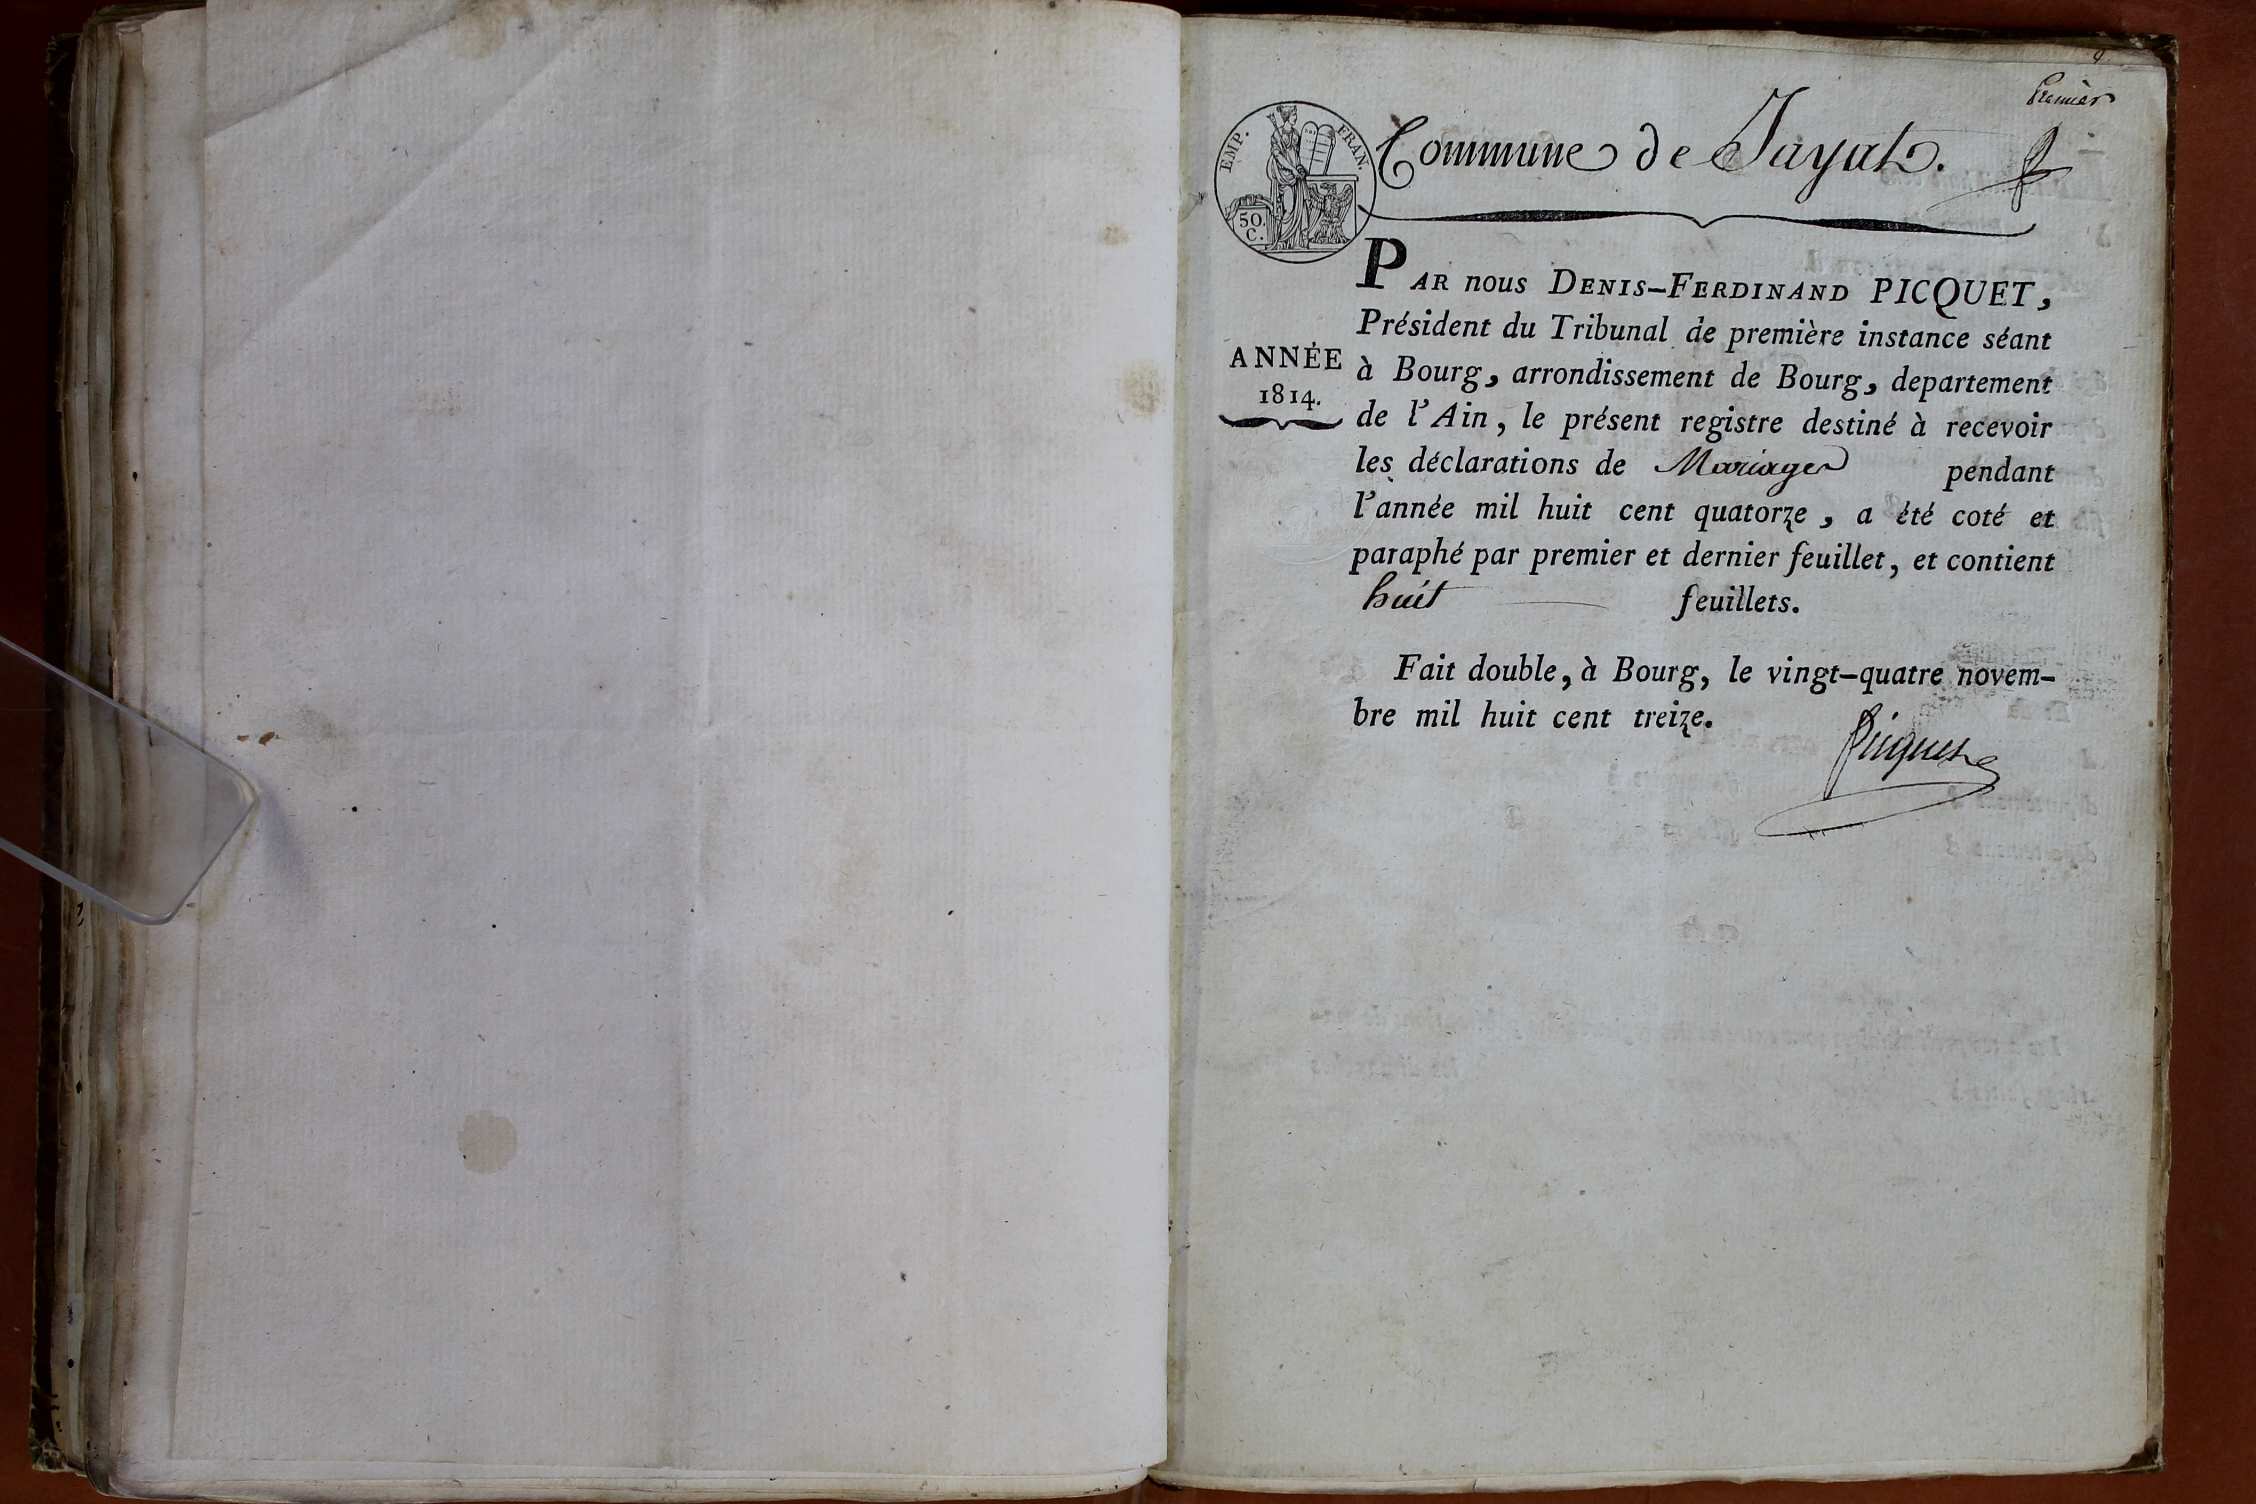 Premier
Commune de Jayat.
EMP. FRAN.
50. C.
PAR nous DENIS-FERDINAND PICQUET,
Président du Tribunal de première instance séant
ANNÉE
1814.
à Bourg, arrondissement de Bourg, departement
de l'Ain, le présent registre destiné à recevoir
les déclarations de Mariages pendant
l'année mil huit cent quatorze, a été coté et
paraphé par premier et dernier feuillet, et contient
huit feuillets.
Fait double, à Bourg, le vingt-quatre novem-
bre mil huit cent treize.
Picquet